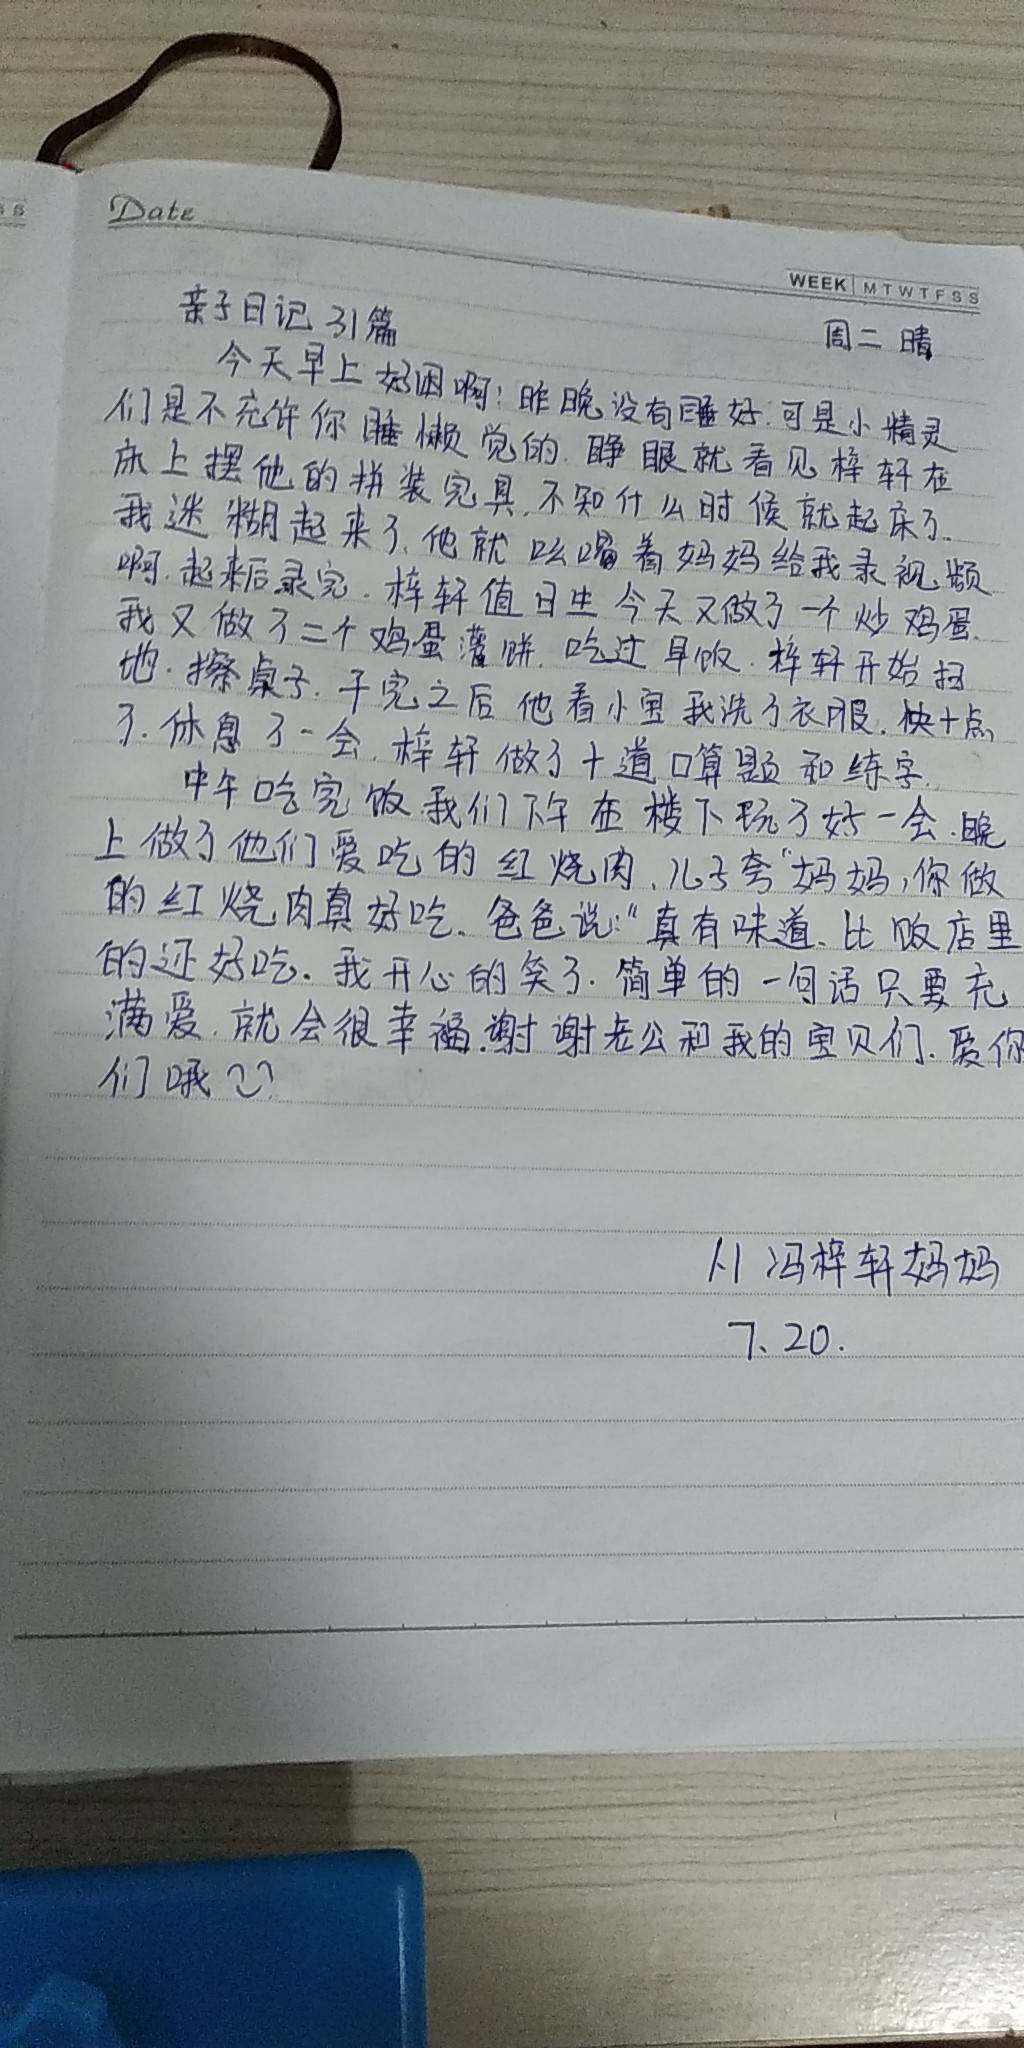 S S
Date
WEEK M T W T F S S
亲子日记 31篇
周二 晴
今天早上好困啊!昨晚没有睡好.可是小精灵
们是不充许你睡懒觉的.睁眼就看见梓轩在
床上摆他的拼装完具.不知什么时候就起床了.
我迷糊起来了.他就吆喝着妈妈给我录视频
啊.起来后录完.梓轩值日生今天又做了一个炒鸡蛋.
我又做了二个鸡蛋灌饼.吃过早饭.梓轩开始扫
地.擦桌子.干完之后他看小宝我洗了衣服.快十点
了.休息了一会.梓轩做了十道口算题和练字.
中午吃完饭.我们下午在楼下玩了好一会.晚
上做了他们爱吃的红烧肉.儿子夸"妈妈,你做
的红烧肉真好吃.爸爸说:"真有味道、比饭店里
的还好吃.我开心的笑了.简单的一句话只要充
满爱.就会很幸福.谢谢老公和我的宝贝们.爱你
们哦
冯梓轩妈妈
7、20.